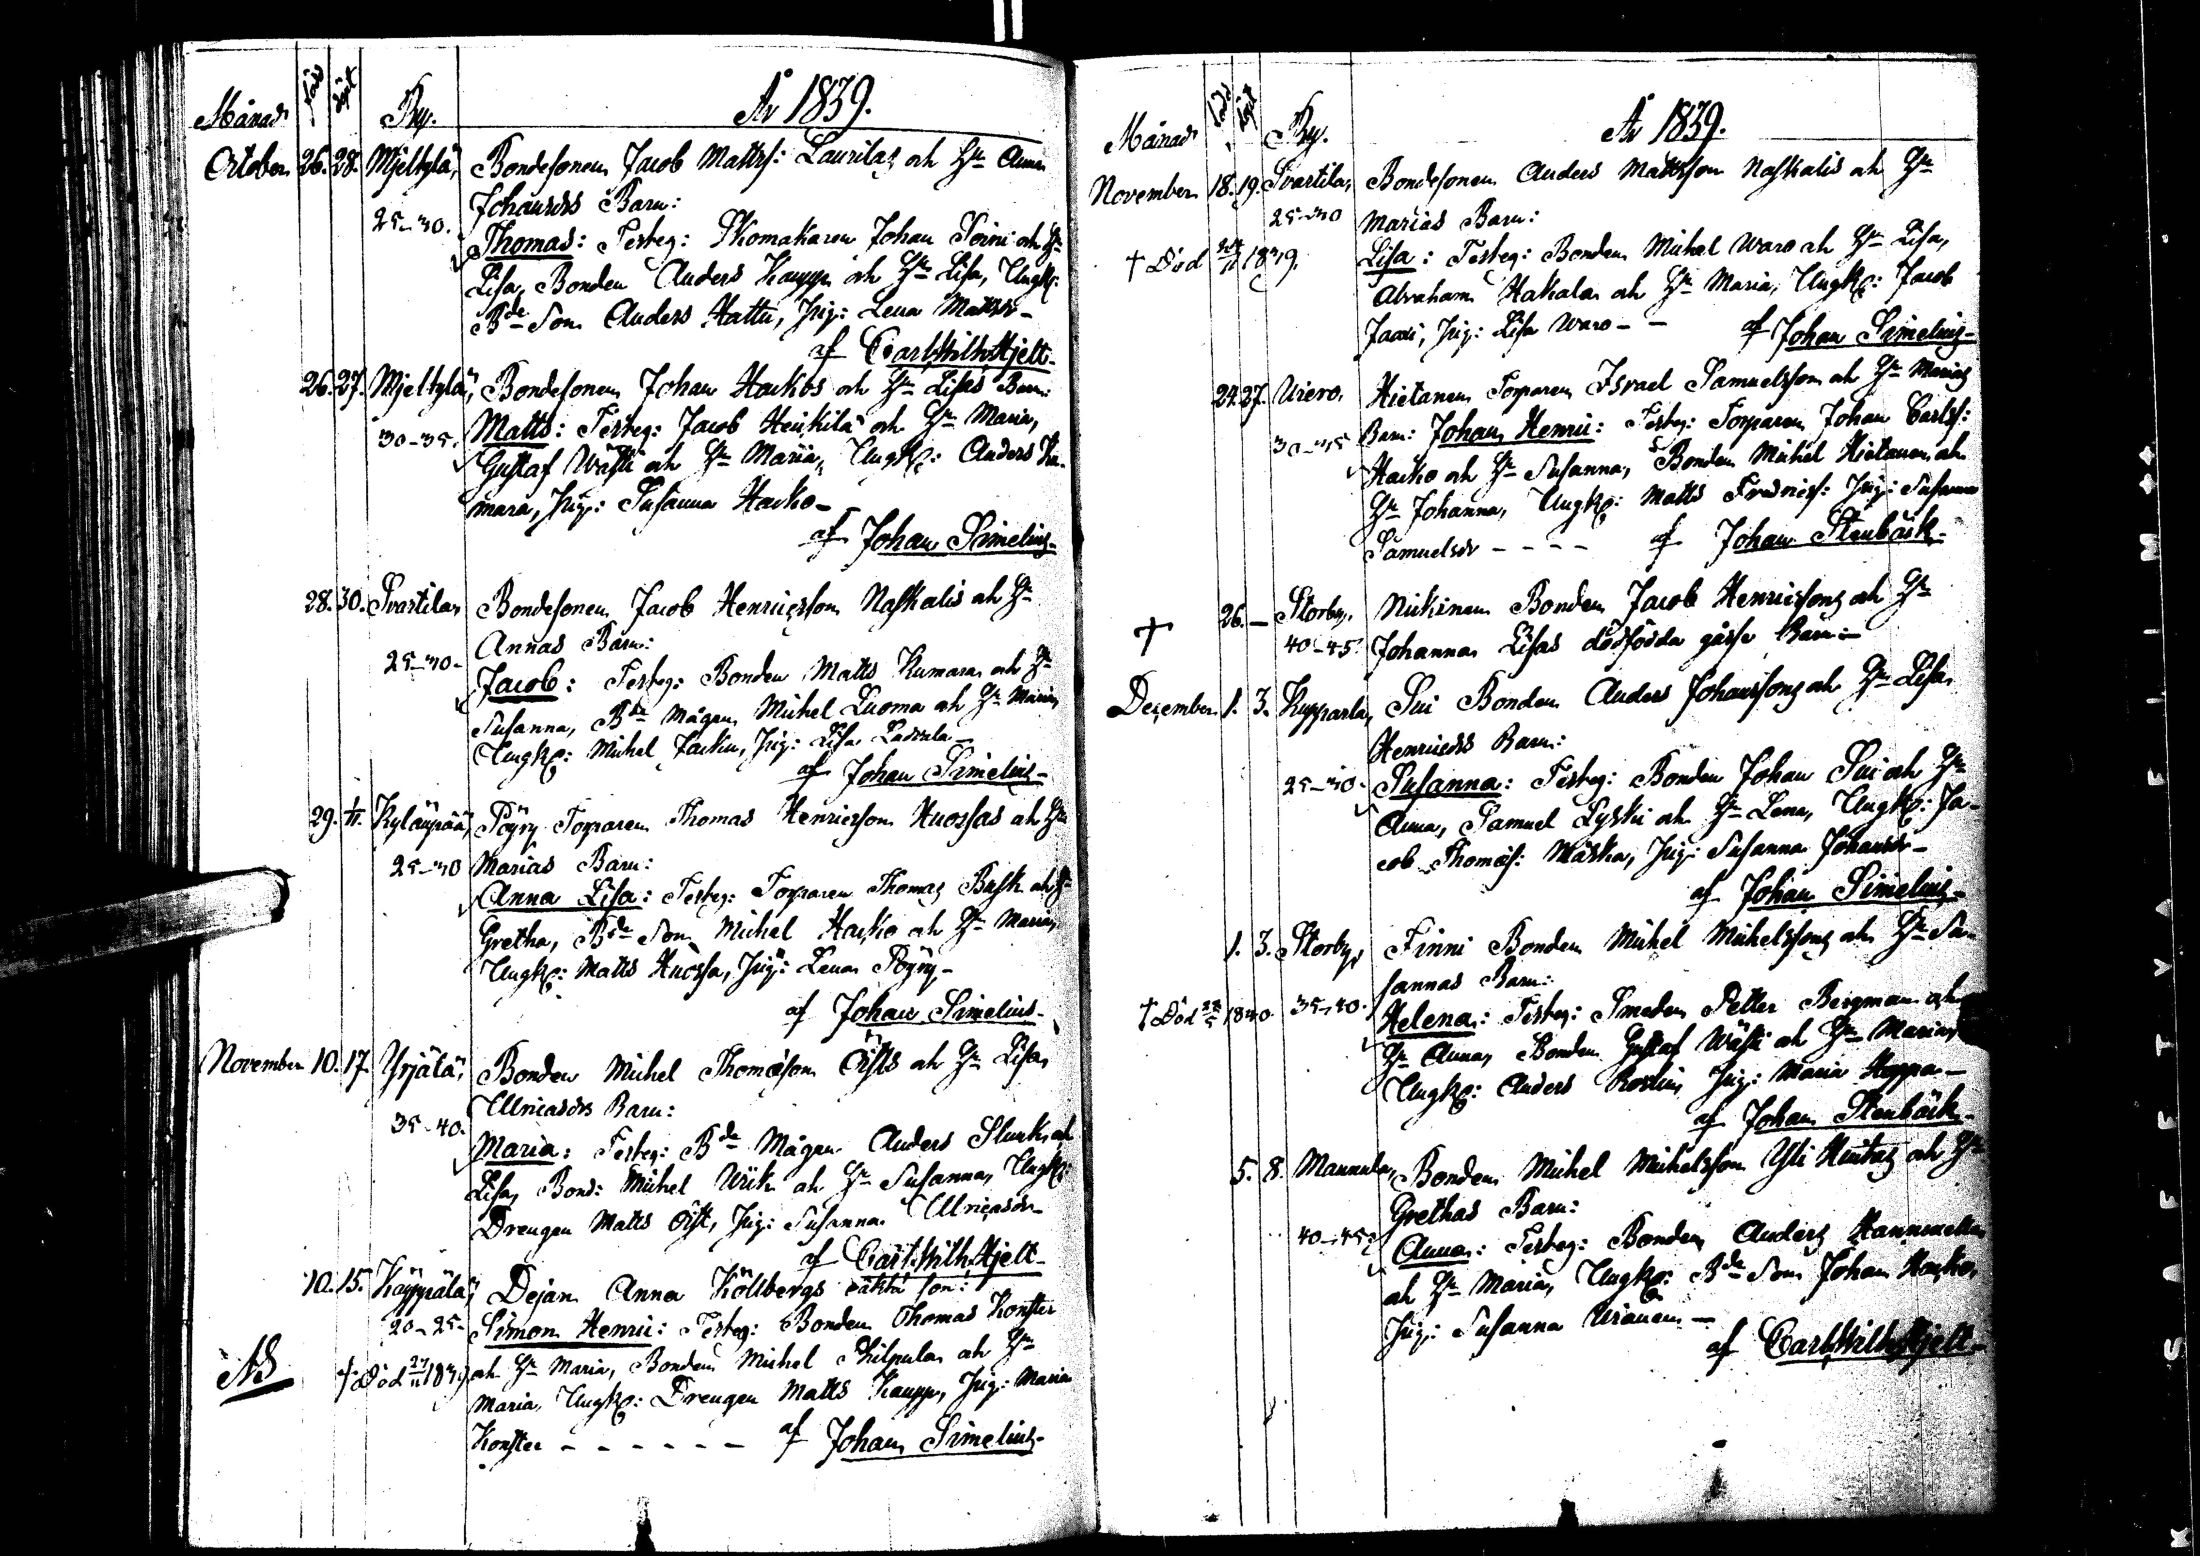 Månad född döpt By. År 1839.
October 26. 28. Mjelkylä, Bondesonen Jacob Mattss: Laurilas och H:u Anna
Johansdrs Barn:
25-30. Thomas: Testeg: Skomakaren Johan Soini och H:u
Lisa, Bonden Anders Kauppi och H:u Lisa, Ungk:
B:de Son Anders Hattu, Jng: Lena Mattsdr-
af Carl Wilh. Hjelt-
26. 27. Mjelkylä, Bondesonen Johan Harkos och H:u Lisas Barn:
30-35. Matts: Testeg: Jacob Heikilä och H:u Maria,
Gustaf Wästi och H:u Maria, Ungk: Anders Ku-
mara, Jng: Susanna Harko-
af Johan Simelius-
28. 30. Svartila, Bondesonen Jacob Henricsson Naskalis och H:u
Annas Barn:
25-30- Jacob: Testeg: Bonden Matts Kumara och H:u
Susanna, B:de Mågen Michel Luoma och H:u Maria,
Ungk: Michel Jacku, Jng: Lisa
af Johan Simelius-
29. 1/11. Kyläupää, Pöyry Torparen Thomas Henricsson Huossas och H:u
25-30 Marias Barn:
Anna Lisa: Testeg: Torparen Thomas Busk och H:u
Gretha, B:de Son Michel Harko och H:u Maria,
Ungk: Matts Huossa, Jng: Lena Pöyry-
af Johan Simelius-
November 10. 17. Yrjälä, Bonden Michel Thomasson Öists och H:u Lisa
Ulricasdrs Barn:
35-40. Maria: Testeg: B:de Mågen Anders Slurk och
Lisa, Bond: Michel Wiik och H:u Susanna, Ungk:
Drengen Matts Öist, Jng: Susanna Ulricasdr-
af Carl Wilh. Hjelt-
10. 15. Käyppälä, Dejan Anna Köllbergs oäkta son:
20-25- Simon Henric: Testeg: Bonden Thomas Konster
NB † Död 27/11 1839. och H:u Maria, Bonden Michel Philpula och H:u
Maria, Ungk: Drengen Matts Kauppi, Jng: Maria
Konster - - - - - - af Johan Simelius-
Månad född döpt By. År 1839.
November 18. 19. Svartila, Bondesonen Anders Mattsson Naskalis och H:u
25-30 Marias Barn:
† Död 1839. Lisa: Testeg: Bonden Michel Waro och H:u Lisa,
Abraham Hakala och H:u Maria, Ungk: Jacob
Jaari, Jng: Lisa Waro - - af Johan Simelius-
24. 27. Wiero. Hietanen Torparen Israel Samuelsson och H:u Marias
30-35 Barn: Johan Henric: Testeg: Torparen Johan Carlss:
Harko och H:u Susanna, Bonden Michel Hietanen och
H:u Johanna, Ungk: Matts Fredricss: Jng: Susanna
Samuelsdr - - - - af Johan Stenbäck-
† 26. - Storby, Nickinen Bonden Jacob Henricssons och H:u
40-45. Johanna Lisas dödfödda gåsse Barn:-
December 1. 3. Kupparla, Sui Bonden Anders Johanssons och H:u Lisa
Henricsdrs Barn:
25-30. Susanna: Testeg: Bonden Johan Sui och H:u
Anna, Samuel Lyski och H:u Lena, Ungk: Ja-
cob Thomass: Märka, Jng: Susanna Johansdr-
af Johan Simelius-
1. 3. Storby, Finni Bonden Michel Michelssons och H:u Su-
sannas Barn:
† Död 1840. 35-40. Helena: Testeg: Smeden Petter Bergman och
H:u Anna, Bonden Gustaf Wästi och H:u Maria,
Ungk: Anders Roslin, Jng: Maria Hoppa-
af Johan Stenbäck-
5. 8. Mannula, Bonden Michel Michelsson Yli Hentas och H:u
Grethas Barn:
40-45. Anna: Testeg: Bonden Anders
och H:u Maria, Ungk: B:de Son Johan Harko,
Jng: Susanna Wiänen -
af Carl Wilh. Hjelt-
SAFETY FILM